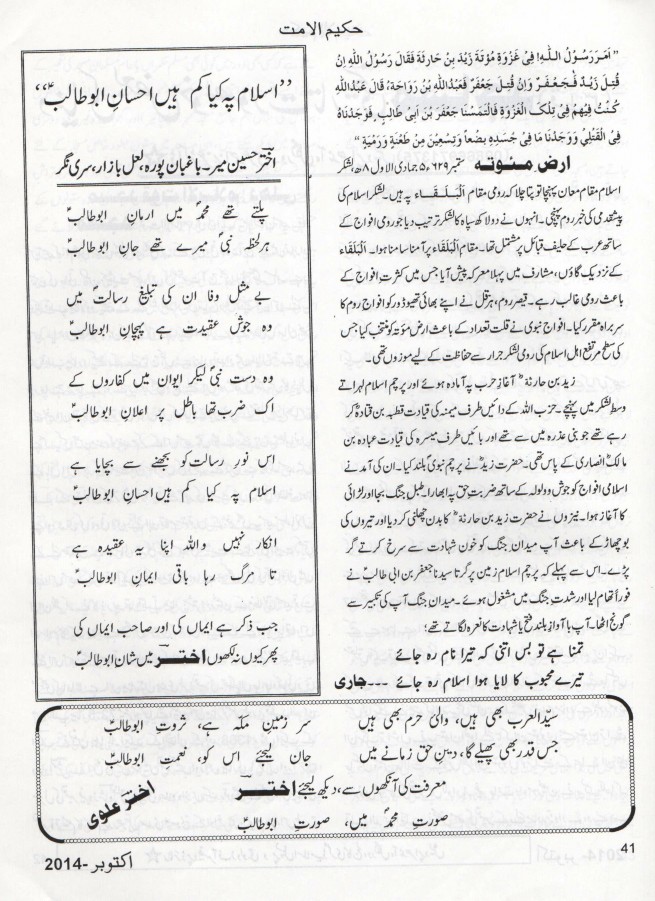 حکیم الامت
” اَمَرَ رَسُوْلُ اللہِ ! فِیْ غَزْوَۃِ مُوْتَۃَ زَیْدَ بْنَ حَارِثَۃَ فَقَالَ رَسُوْلُ اللہِ اِنْ
قُتِلَ زَیْدٌ فَجَعْفَرٌ وَاِنْ قُتِلَ جَعْفَرٌ فَعَبْدُ اللہِ بْنُ رَوَاحَۃَ، قَالَ عَبْدُ اللہِ
کُنْتُ فِیْھِمْ فِیْ تِلْکَ الْغَزْوَۃِ فَالْتَمَسْنَا جَعْفَرَ بْنَ اَبِیْ طَالِبٍ ، فَوَجَدْنَاہُ
فِی الْقَتْلٰی وَوَجَدْنَا مَا فِیْ جَسَدِہٖ بِضْعًا وَّتِسْعِیْنَ مِنْ طَعْنَۃٍ وَرَمْیَۃٍ “
ارضِ مئوتہ ستمبر ۶۲۹ء، ۵ جمادی الاول ۸ھ، لشکر
اسلام مقام معان پہنچا تو پتا چلا کہ رومی مقام اَلْبَلْقَاء پہ ہیں۔ لشکر اسلام کی
پیشقدمی کی خبر روم پہنچی۔ انہوں نے دو لاکھ سپاہ کا لشکر ترتیب دیا جو رومی افواج کے
ساتھ عرب کے حلیف قبائل پر مشتمل تھا۔ مقام اَلْبَلْقَاء پر آمنا سامنا ہوا۔ اَلْبَلْقَاء
کے نزدیک گاؤں، مشارف میں پہلا معرکہ پیش آیا جس میں کثرتِ افواج کے
باعث رومی غالب رہے۔ قیصر روم، ہرقل نے اپنے بھائی تھیوڈور کو افواج روم کا
سربراہ مقرر کیا۔ افواج نبوی نے قلت تعداد کے باعث ارض مؤتہ کو منتخب کیا جس
کی سطح مرتفع اہل اسلام کی رومی لشکر جرار سے حفاظت کے لیے موزوں تھی۔
زید بن حارثہؓ آغاز حرب پہ آمادہ ہوئے اور پرچم اسلام لہراتے
وسط لشکر میں پہنچے۔ حزب اللہ کے دائیں طرف میمنہ کی قیادت قطبہ بن قتادہؓ کر
رہے تھے جو بنی عذرہ میں سے تھے اور بائیں طرف میسرہ کی قیادت عبادہ بن
مالکؓ انصاری کے پاس تھی۔ حضرت زیدؓ نے پرچم نبویؐ بلند کیا۔ ان کی آمد نے
اسلامی افواج کو جوش و ولولہ کے ساتھ ضربتِ حق پہ ابھارا۔ طبل جنگ بجا اور لڑائی
کا آغاز ہوا۔ نیزوں نے حضرت زید بن حارثہؓ کا بدن چھلنی کر دیا اور تیروں کی
بوچھاڑ کے باعث آپ میدان جنگ کو خون شہادت سے سرخ کرتے گر
پڑے۔ اس سے پہلے کہ پرچم اسلام زمین پر گرتا سیدنا جعفر بن ابی طالبؓ نے
فوراً تھام لیا اور شدتِ جنگ میں مشغول ہوئے۔ میدان جنگ آپ کی تکبیر سے
گونج اٹھا۔ آپ با آواز بلند فتح یا شہادت کا نعرہ لگاتے تھے؛
تمنا ہے تو بس اتنی کہ تیرا نام رہ جائے
تیرے محبوب کا لایا ہوا اسلام رہ جائے ---جاری
”اسلام پہ کیا کم ہیں احسانِ ابو طالبؑ“
اخترؔ حسین میر۔ باغبان پورہ، لعل بازار، سری نگر
پلتے تھے محمدؐ میں ارمانِ ابوطالبؑ
ہر لحظہ نبیؐ میرے تھے جانِ ابوطالبؑ
بے مثل وفا ان کی تبلیغِ رسالت میں
وہ جوشِ عقیدت ہے پہچانِ ابوطالبؑ
وہ دستِ نبیؐ لیکر ایوان میں کفاروں کے
اک ضرب تھا باطل پر اعلانِ ابوطالبؑ
اس نورِ رسالت کو بجھنے سے بچایا ہے
اسلام پہ کیا کم ہیں احسانِ ابوطالبؑ
انکار نہیں واللہ اپنا یہ عقیدہ ہے
تا مرگ رہا باقی ایمانِ ابوطالبؑ
جب ذکر ہے ایماں کی اور صاحبِ ایماں کی
پھر کیوں نہ لکھوں اختؔر میں شانِ ابوطالبؑ
سیّد العرب بھی ہیں، والیٔ حرم بھی ہیں
سر زمینِ مکّہ ہے، ثروتِ ابوطالبؑ
جس قدر بھی پھیلے گا، دینِ حق زمانے میں
جان لیجئے اس کو، قیمتِ ابوطالبؑ
معرفت کی آنکھوں سے، دیکھ لیجئے اختؔر
صورتِ محمدؐ میں، صورتِ ابوطالبؑ
اختر علوی
41
اکتوبر-2014